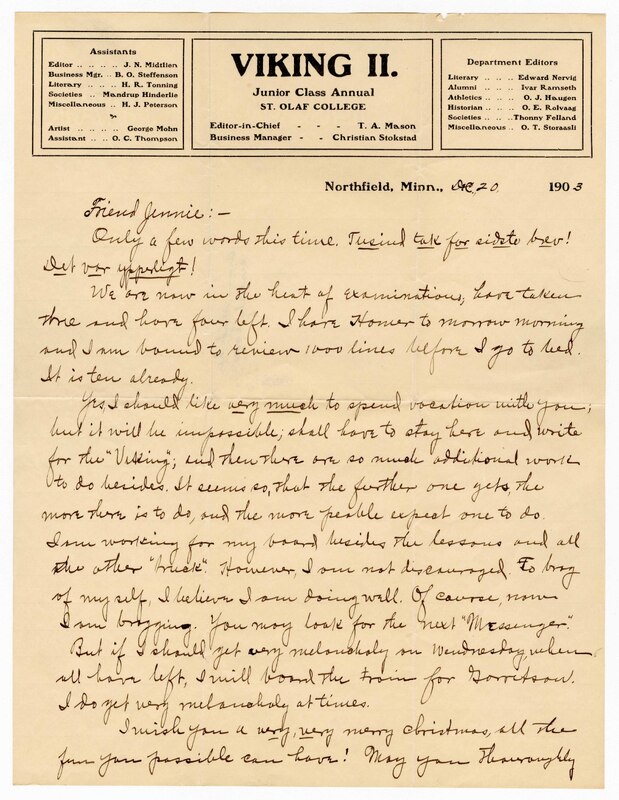 Assistants
Editor .. .. .. .. J. N. Midtlien
Business Mgr. .. B. O. Steffenson
Literary .. .. .. H. R. Tonning
Societies .. Mandrup Hinderlie
Miscellaneous .. H. J. Peterson
Artist .. .. .. George Mohn
Assistant .. .. O. C. Thompson
VIKING II.
Junior Class Annual
ST. OLAF COLLEGE
Editor-in-Chief - - - T. A. Mason
Business Manager - - Christian Stokstad
Department Editors
Literary .. .. .. Edward Nervig
Alumni .. .. .. Ivar Ramseth
Athletics .. .. .. O. J. Haugen
Historian .. .. .. O. E. Rolvaag
Societies .. .. Thonny Felland
Miscellaneous .. O. T. Storaasli
Northfield, Minn., Dec, 20 1903
Friend Jennie: —
Only a few words this time. Tusind tak for sidste brev!
Det var ypperligt!
We are now in the heat of examinations, have taken
three and have four left. I have Homer to morrow morning
and I am bound to review 1000 lines before I go to bed.
It is ten already.
Yes, I should like very much to spend vacation with you;
but it will be impossible; shall have to stay here and write
for the "Viking"; and then there are so much additional work
to do besides. It seems so, that the further one gets, the
more there is to do, and the more people expect one to do.
I am working for my board besides the lessons and all
the other "truck". However, I am not discouraged. To brag
of myself, I believe I am doing well. Of course, now
I am bragging. You may look for the next "Messenger".
But if I should get very melancholy on Wendnesday, when
all have left, I will board the train for Garretson.
I do get very melancholy at times.
I wish you a very, very merry christmas, all the
fun you possible can have! May you thouroughly